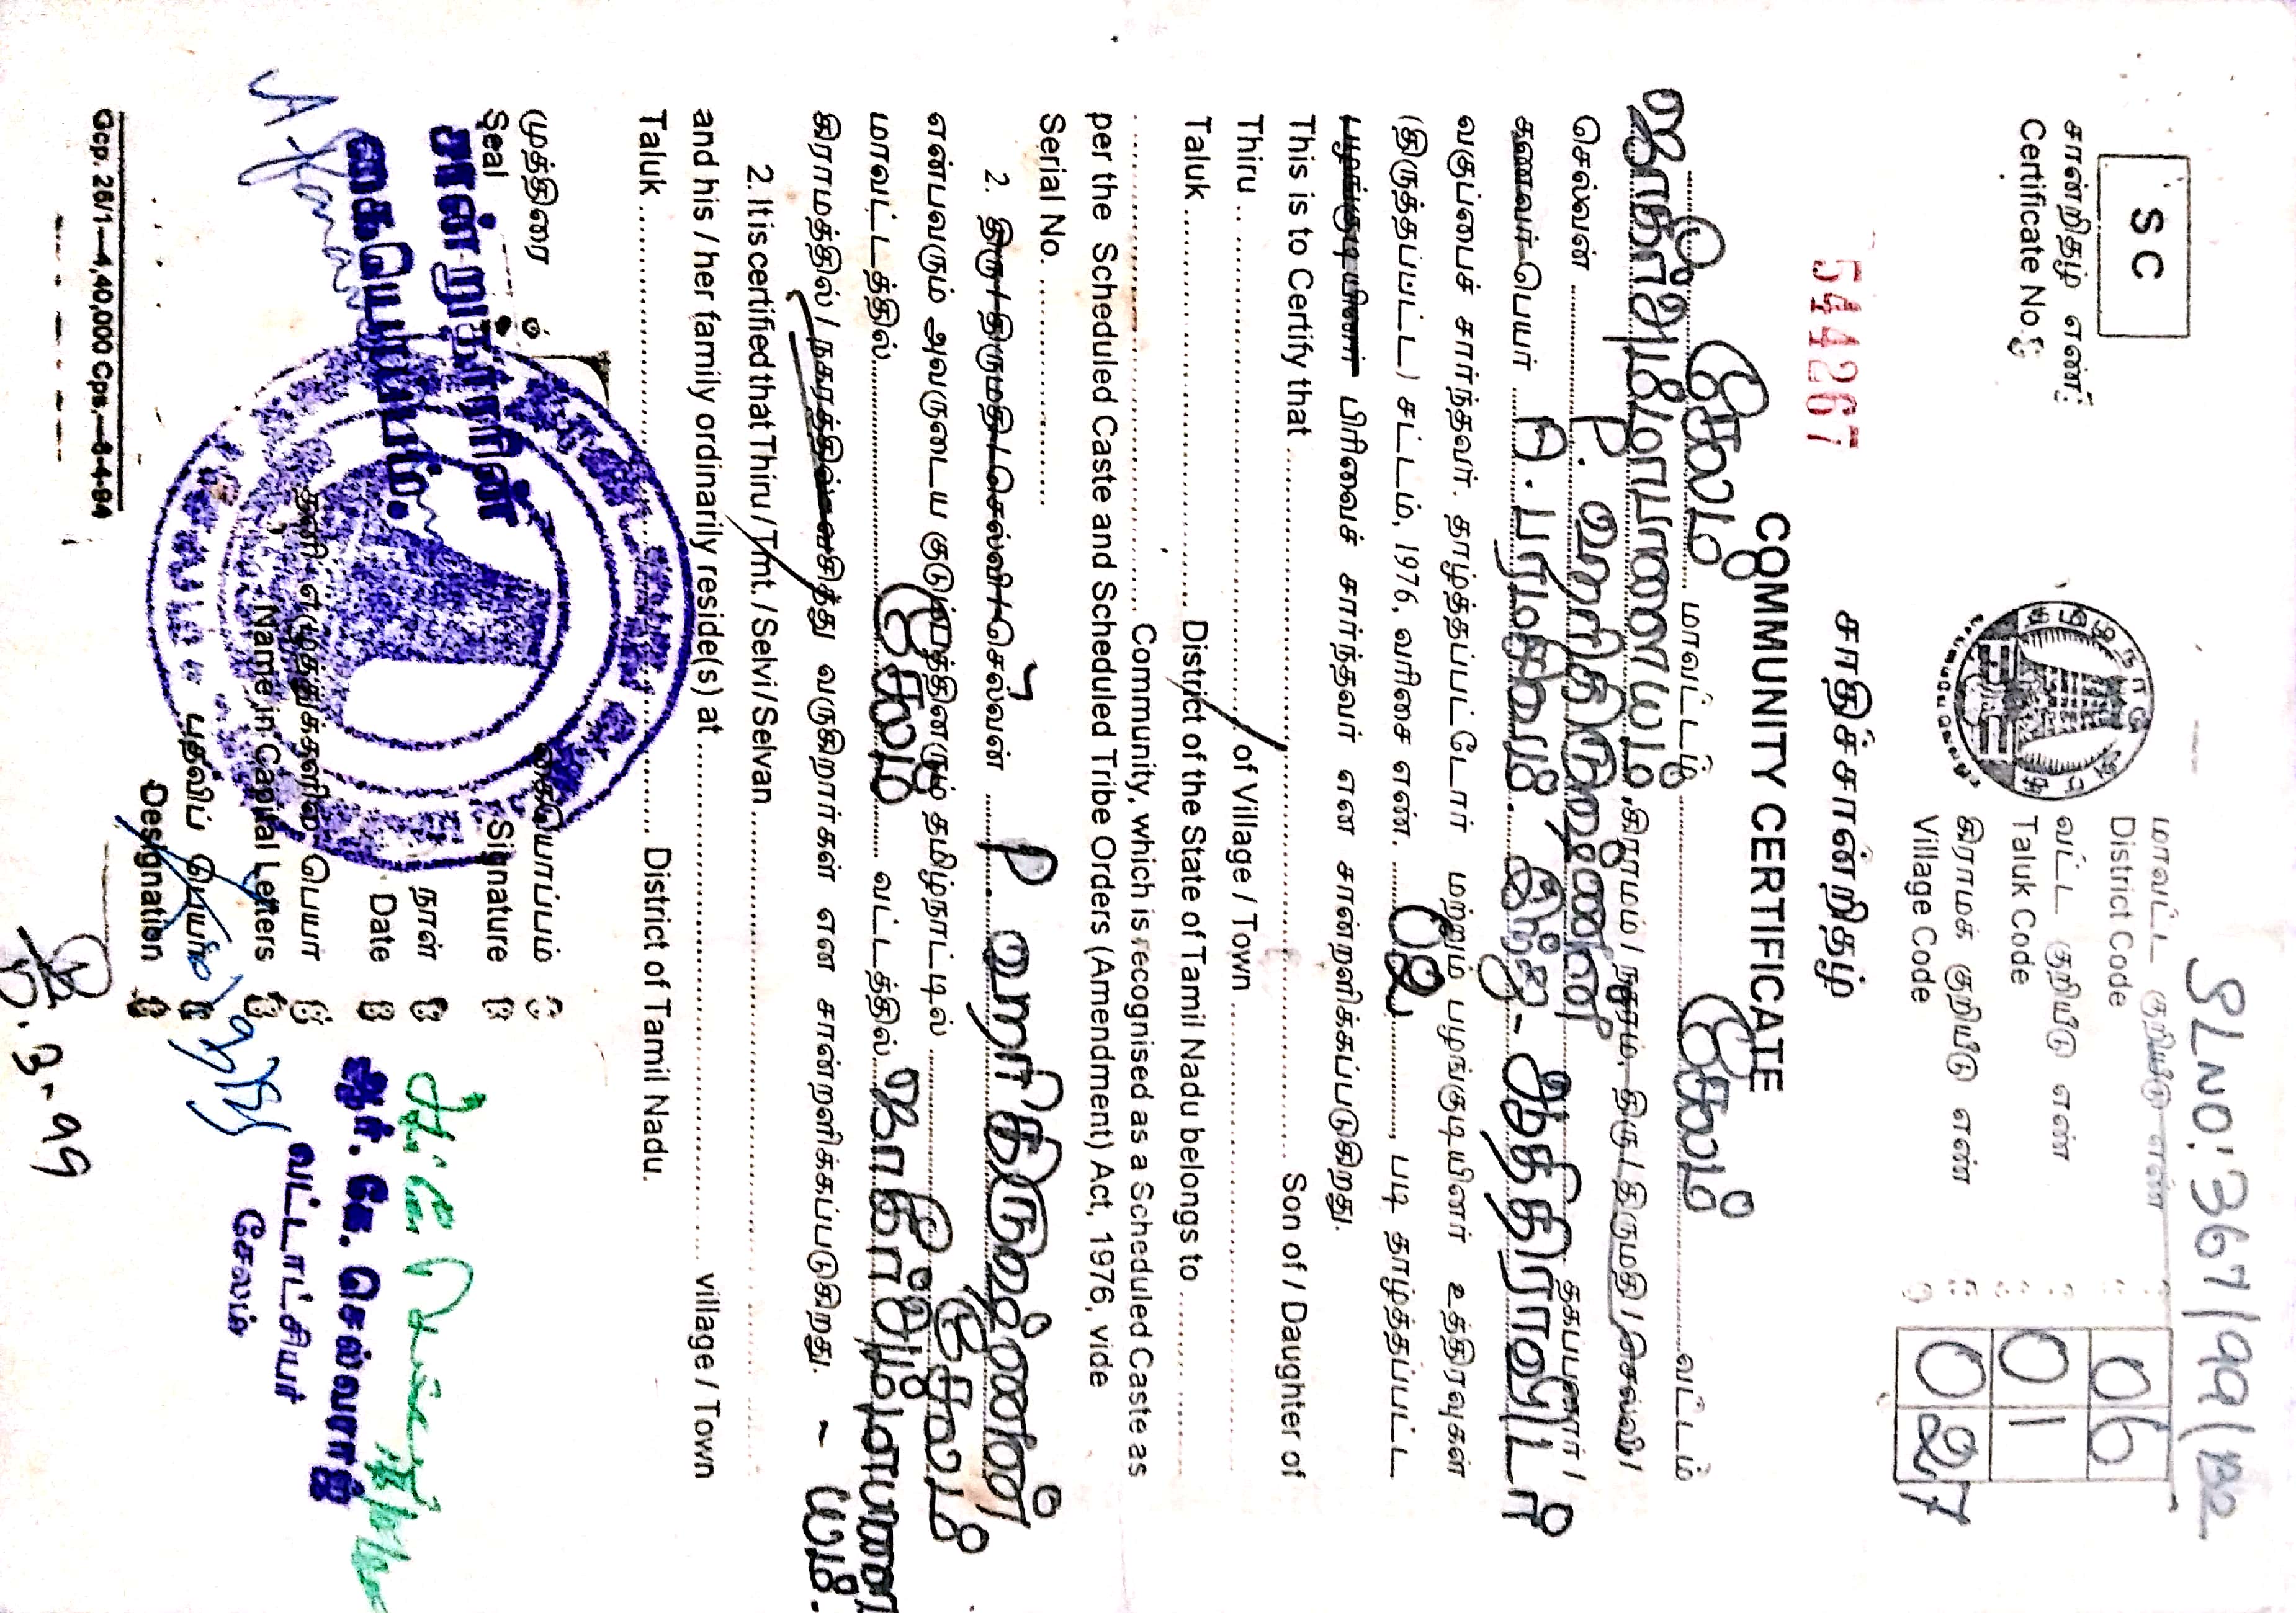 SL NO: 367/99/B2
SC
சான்றிதழ் எண்:
Certificate No.
544267
தமிழ்நாடு அரசு
மாவட்ட குறியீடு எண்
District Code : 06
வட்ட குறியீடு எண்
Taluk Code : 01
கிராமக் குறியீடு எண்
Village Code : 027
சாதிச்சான்றிதழ்
COMMUNITY CERTIFICATE
சேலம் மாவட்டம் சேலம் வட்டம்
ஜாகிர்அம்மாபாளையம் கிராமம் / நகரம். திரு / திருமதி / செல்வி /
செல்வன் P. ஹரிகிருஷ்ணன் தகப்பனார் /
கணவர் பெயர் A. பரமசிவம். இந்து-ஆதிதிராவிடர்
வகுப்பைச் சார்ந்தவர். தாழ்த்தப்பட்டோர் மற்றும் பழங்குடியினர் உத்திரவுகள்
(திருத்தப்பட்ட) சட்டம், 1976, வரிசை எண். 02, படி தாழ்த்தப்பட்ட
பழங்குடியினர் பிரிவைச் சார்ந்தவர் என சான்றளிக்கப்படுகிறது.
This is to Certify that ........ Son of / Daughter of
Thiru ........ of Village / Town ........
Taluk ........ District of the State of Tamil Nadu belongs to ........
........ Community, which is recognised as a Scheduled Caste as
per the Scheduled Caste and Scheduled Tribe Orders (Amendment) Act, 1976, vide
Serial No. ........
2. திரு / திருமதி / செல்வி / செல்வன் P ஹரிகிருஷ்ணன்
என்பவரும் அவருடைய குடும்பத்தினரும் தமிழ்நாட்டில் சேலம்
மாவட்டத்தில் சேலம் வட்டத்தில் ஜாகீர்அம்மாபாளை
கிராமத்தில் / நகரத்தில் வசித்து வருகிறார்கள் என சான்றளிக்கப்படுகிறது. - யம்.
2. It is certified that Thiru / Tmt. / Selvi / Selvan ........
and his / her family ordinarily reside(s) at ........ village / Town
Taluk ........ District of Tamil Nadu.
முத்திரை
Seal
சான்றுதாரரின்
கையொப்பம்.
கையொப்பம்
Signature
நாள்
Date
தனி எழுத்துக்களில் பெயர்
Name in Capital Letters
பதவிப் பெயர்
Designation
ஆர். கே. செல்வராஜ்
வட்டாட்சியர்
சேலம்
3-99
Gcp. 26/1—4,40,000 Cps.—8-4-94